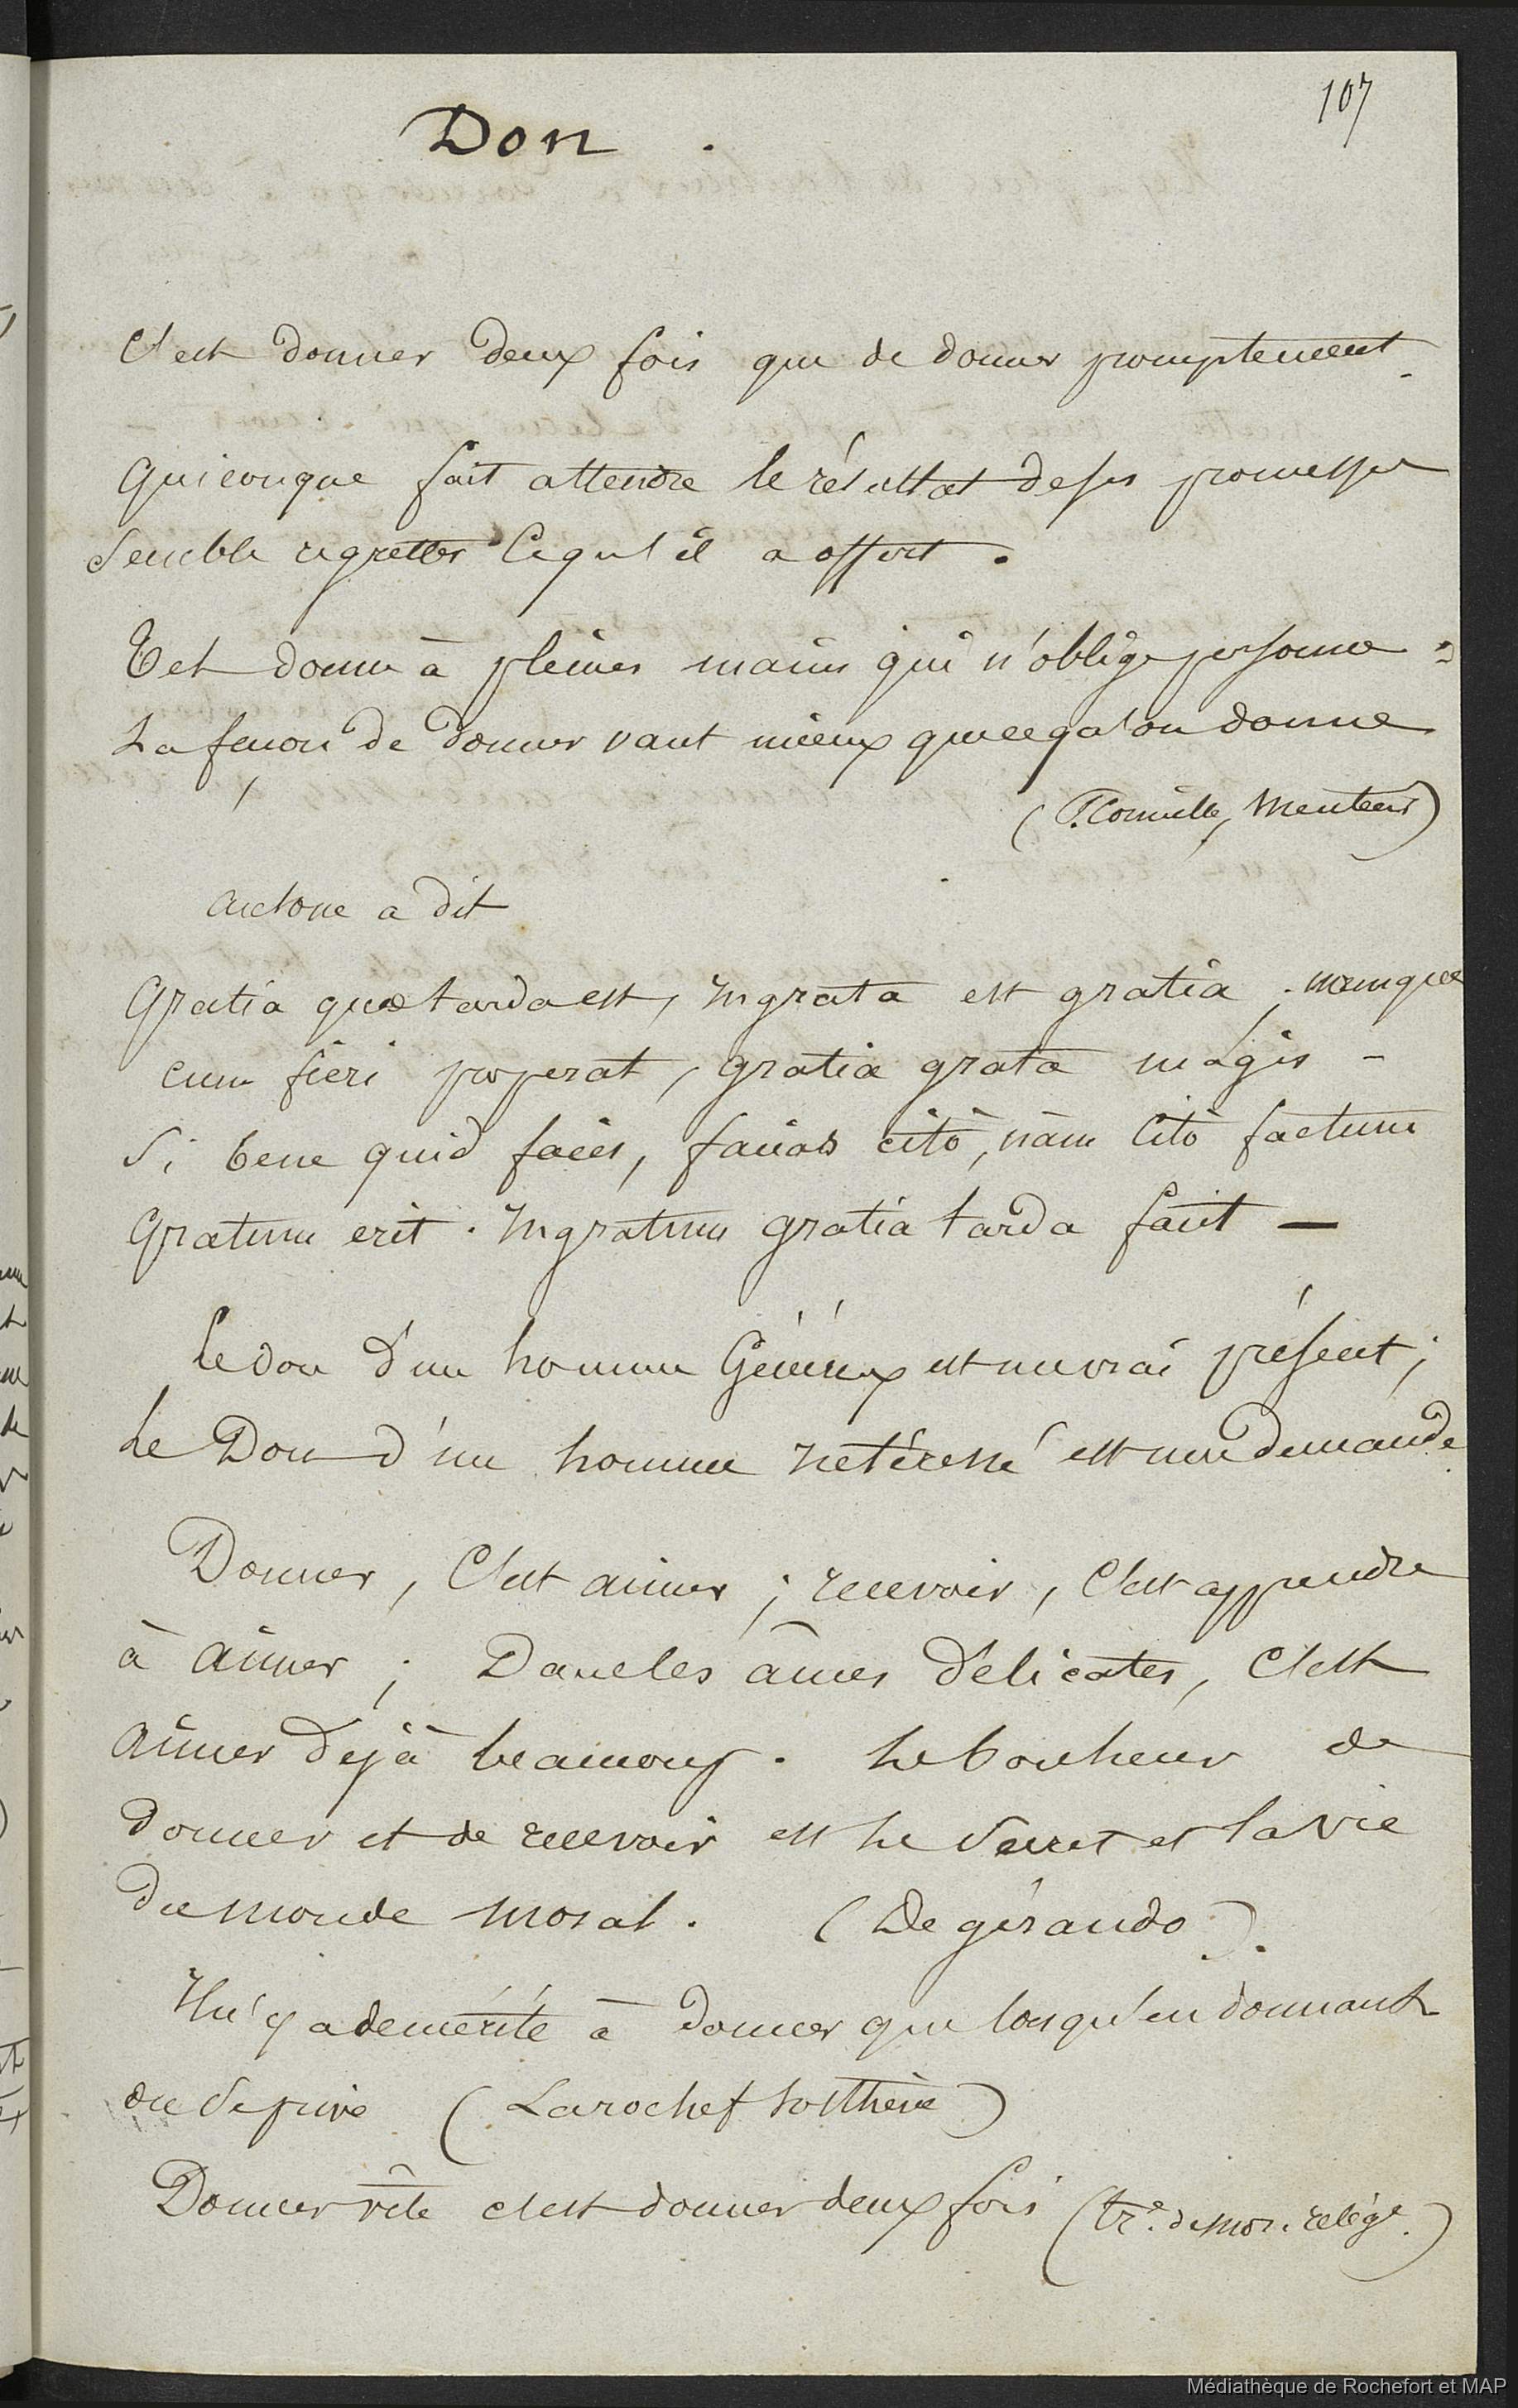 107
Don .
C'est donner deux fois que de donner promptement.
Quiconque fait attendre le résultat de ses promesses
Semble regretter ce qu'il a offert.
Tel donne à pleines mains qui n'oblige personne :
La façon de donner vaut mieux que ce qu'on donne
(P. Corneille, Menteur)
ausone a dit
Gratia quae tarda est, ingrata est gratia ; namque
cum fieri properat, gratia grata magis -
Si bene quid facies, facias citò, nàm citò factum
Gratum erit. Ingratum gratia tarda facit —
Le don d'un homme Généreux est un vrai présent ;
Le Don d'un homme intéressé est une demande.
Donner, C'est aimer ; recevoir, C'est apprendre
à aimer ; Dans les âmes délicates, C'est
aimer déjà beaucoup. Le bonheur de
donner et de recevoir est le secret et la vie
du monde moral. (De gérando).
Il n'y a de mérite à donner que lorsqu'en donnant
on se prive (Larochef
Donner vite c'est donner deux fois (tré. de mor. relig.)
Médiathèque de Rochefort et MAP